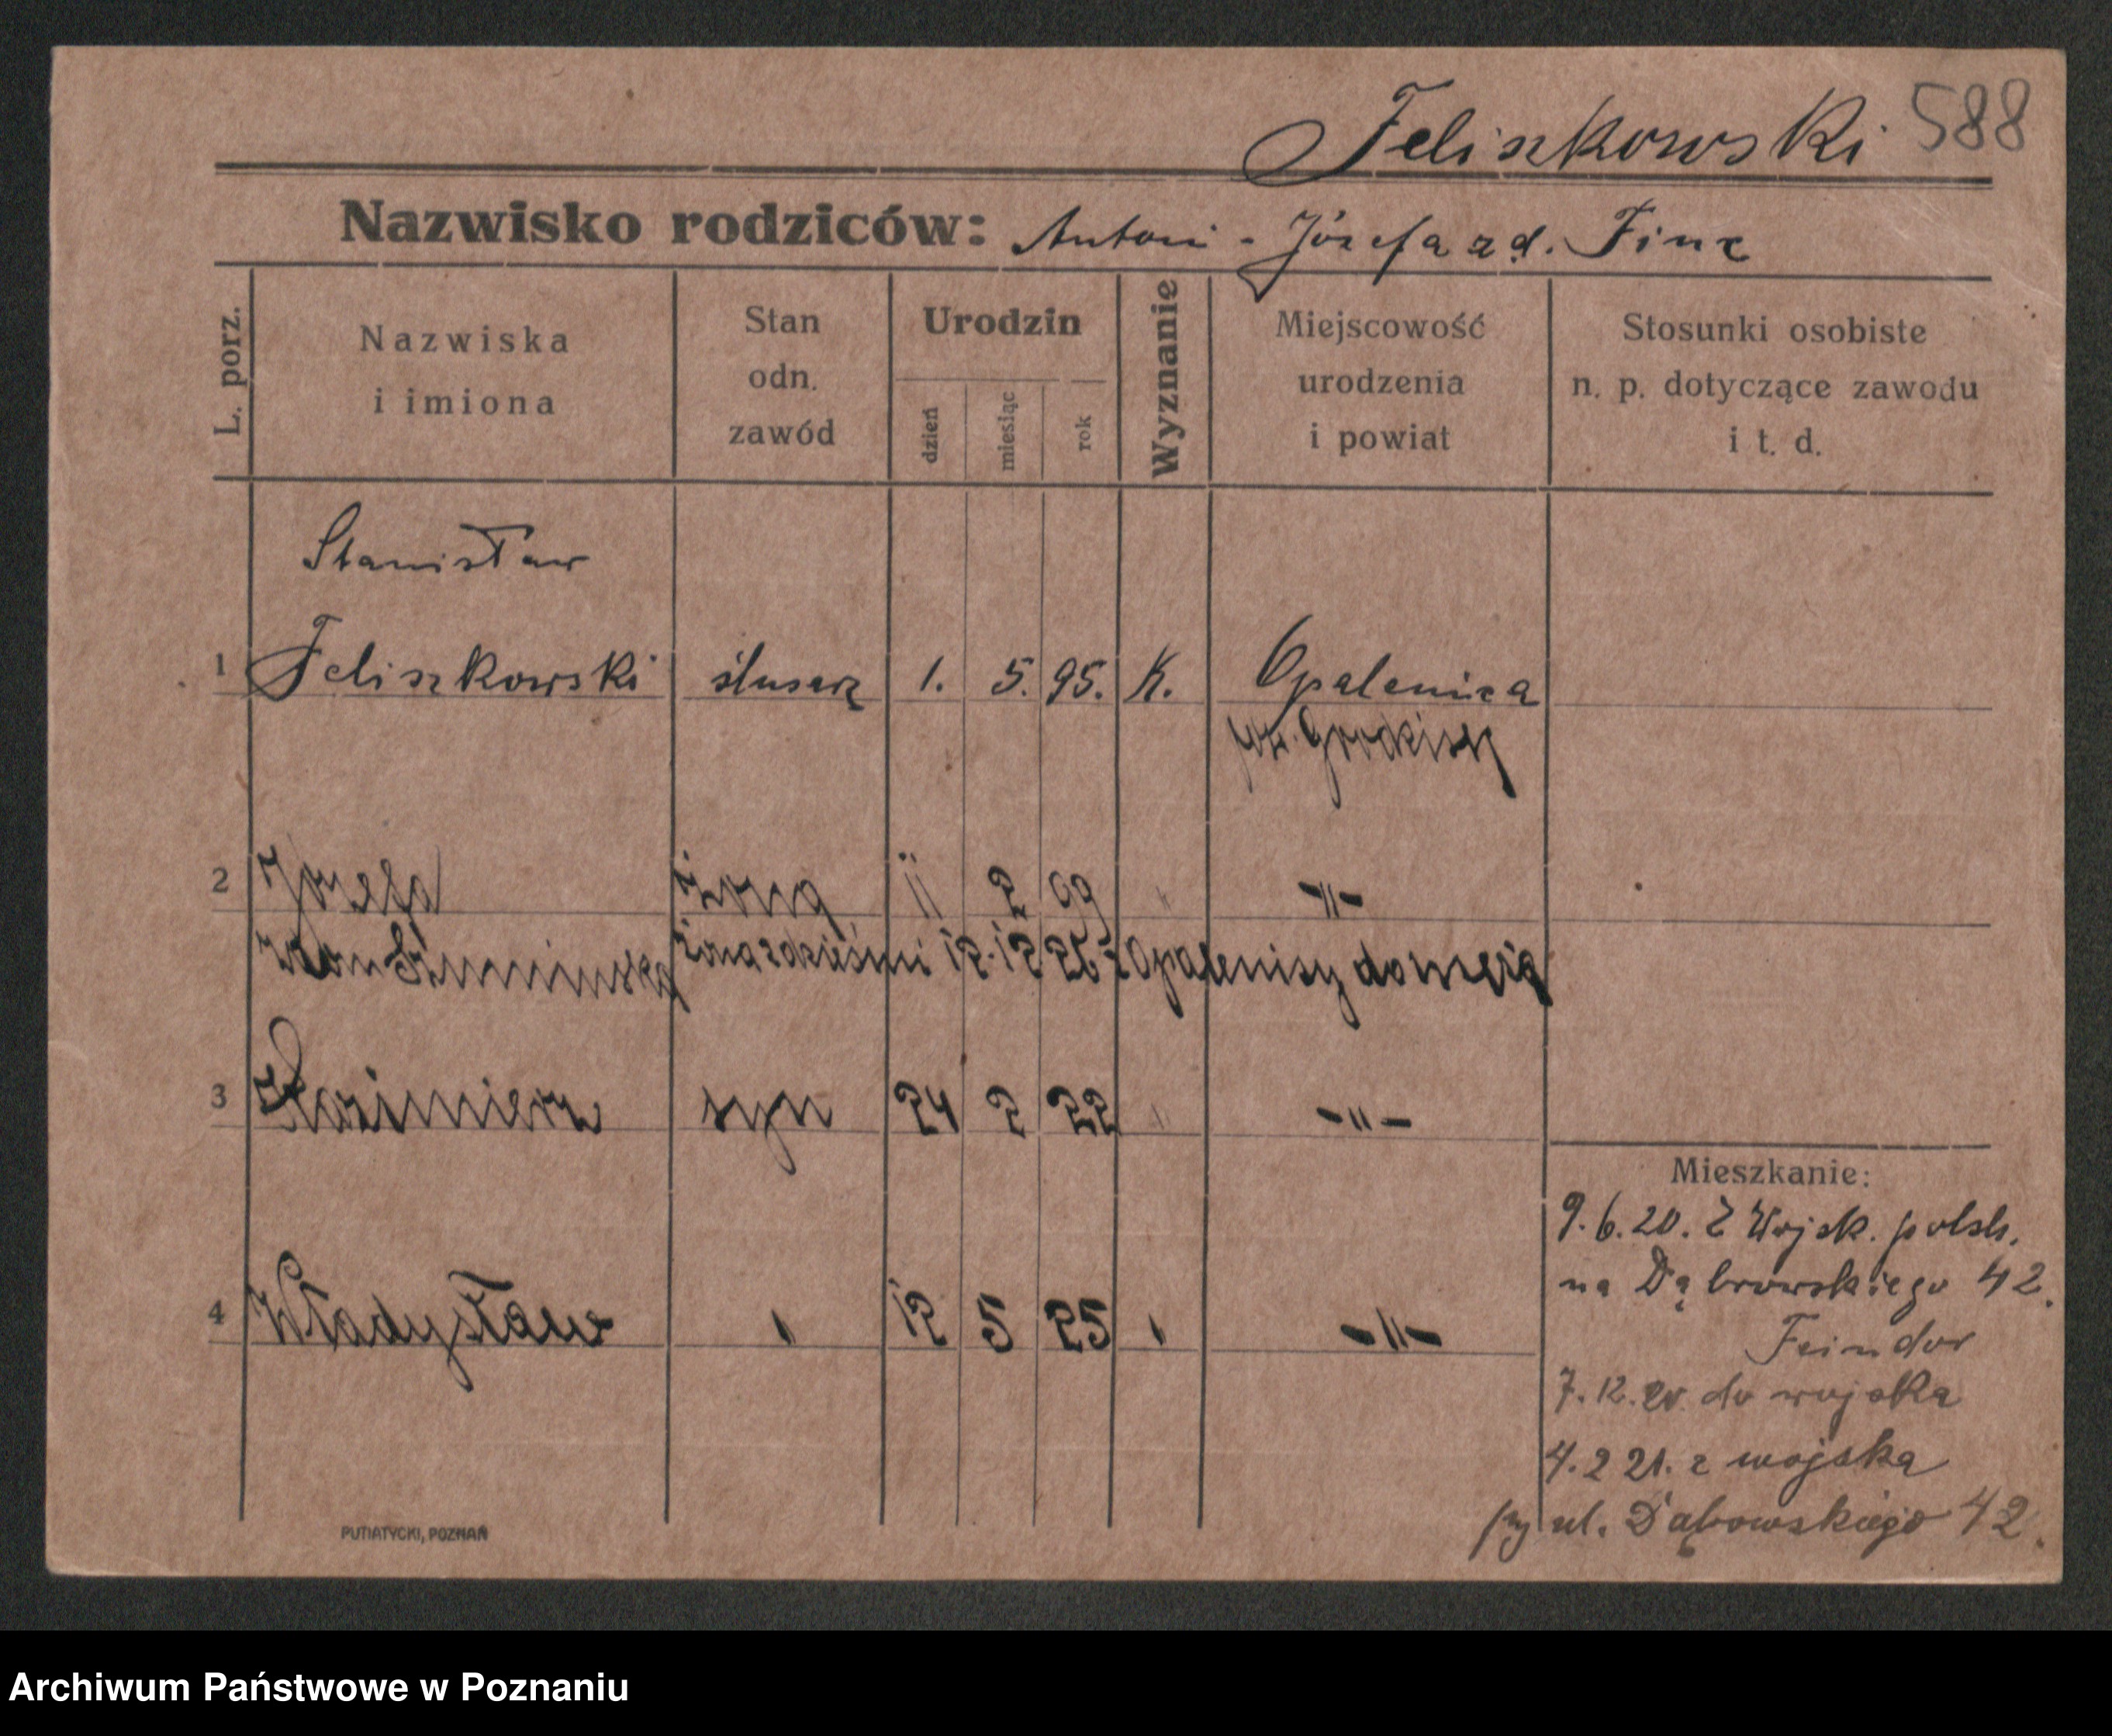 Feliszkowski 588
Nazwisko rodziców: Antoni - Józefa zd. Finc
L. porz.
Nazwiska
i imiona
Stan
odn.
zawód
Urodzin
dzień
miesiąc
rok
Wyznanie
Miejscowość
urodzenia
i powiat
Stosunki osobiste
n. p. dotyczące zawodu
i t. d.
Stanisław
1 Feliszkowski ślusarz 1. 5. 95. K. Opalenica
pow. Grodzisk
2 Józefa żona 11 2 99 " -"-
Szumińska żona z dziećmi 12.12 26 z Opalenicy do męża
3 Kazimierz syn 24 2 22 " -"-
4 Władysław " 12 5 25 " -"-
Mieszkanie:
9.6.20. Z Wojsk. polsk.
na Dąbrowskiego 42.
Feindor
7.12.20. do wojska
4.2 21. z wojska
przy ul. Dąbowskiego 42.
PUTIATYCKI, POZNAŃ
Archiwum Państwowe w Poznaniu